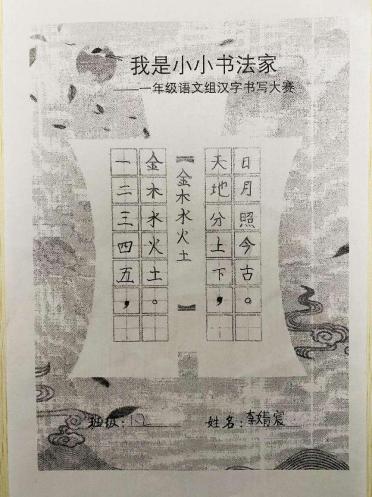 我是小小书法家
——一年级语文组汉字书写大赛
金木水火土
一二三四五，
金木水火土。
天地分上下，
日月照今古。
班级：1.2
姓名：李